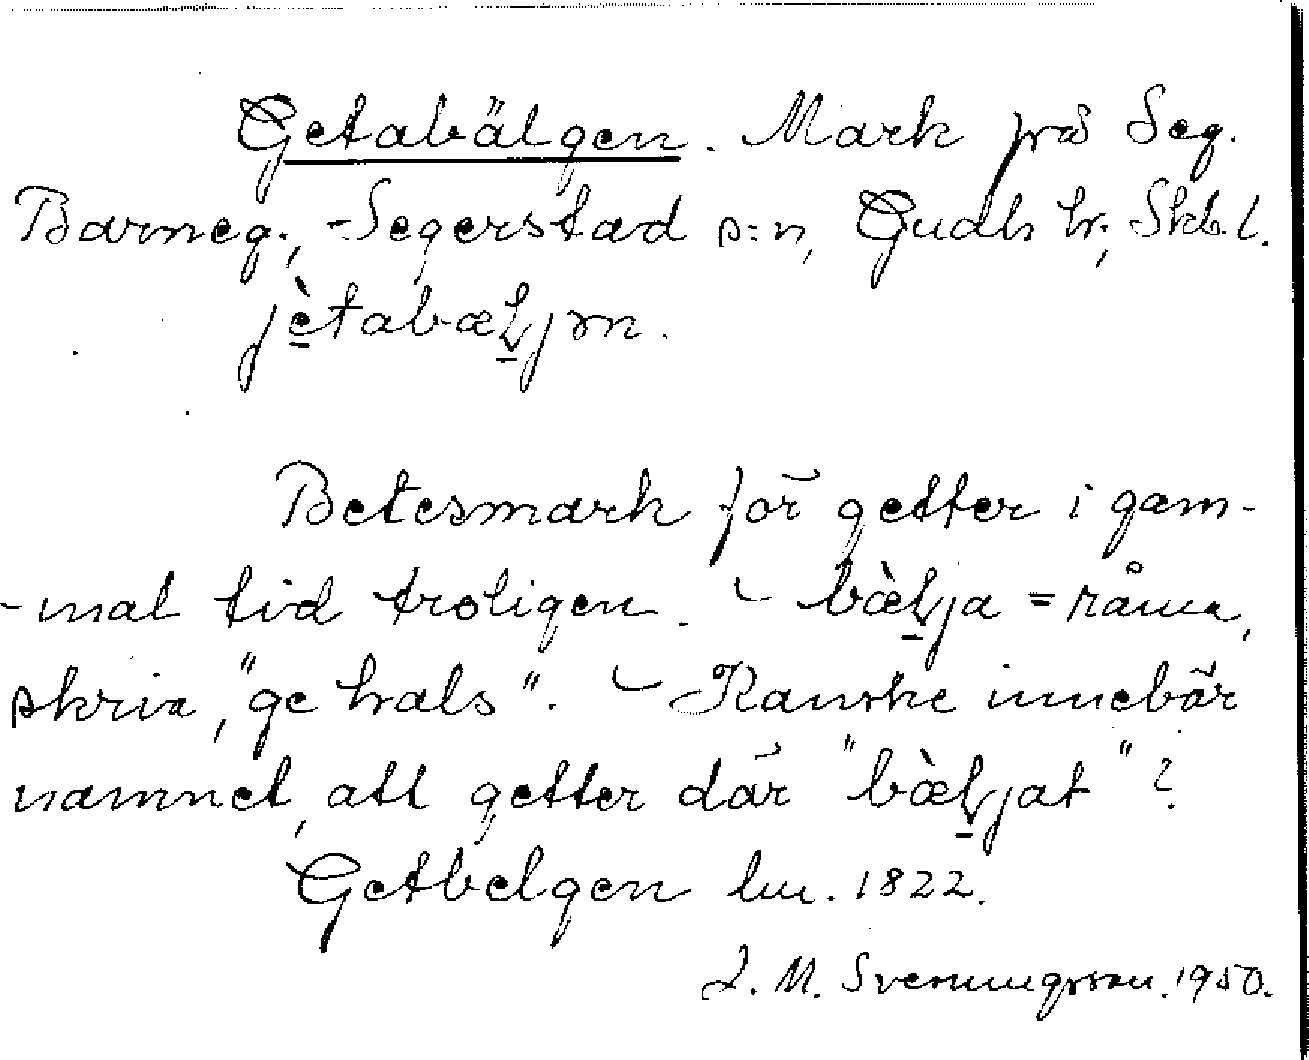 Getabälgen. Mark på Seg.
Barneg., Segerstad s:n, Gudh hr, Skb. l.
jètabæljən.
Betesmark för getter i gam-
-mal tid troligen. - bælja = råma,
skria, "ge hals". - Kanske innebär
namnet, att getter där "bæljat"?
Getbelgen lm. 1822.
J. M. Svenungsson. 1950.